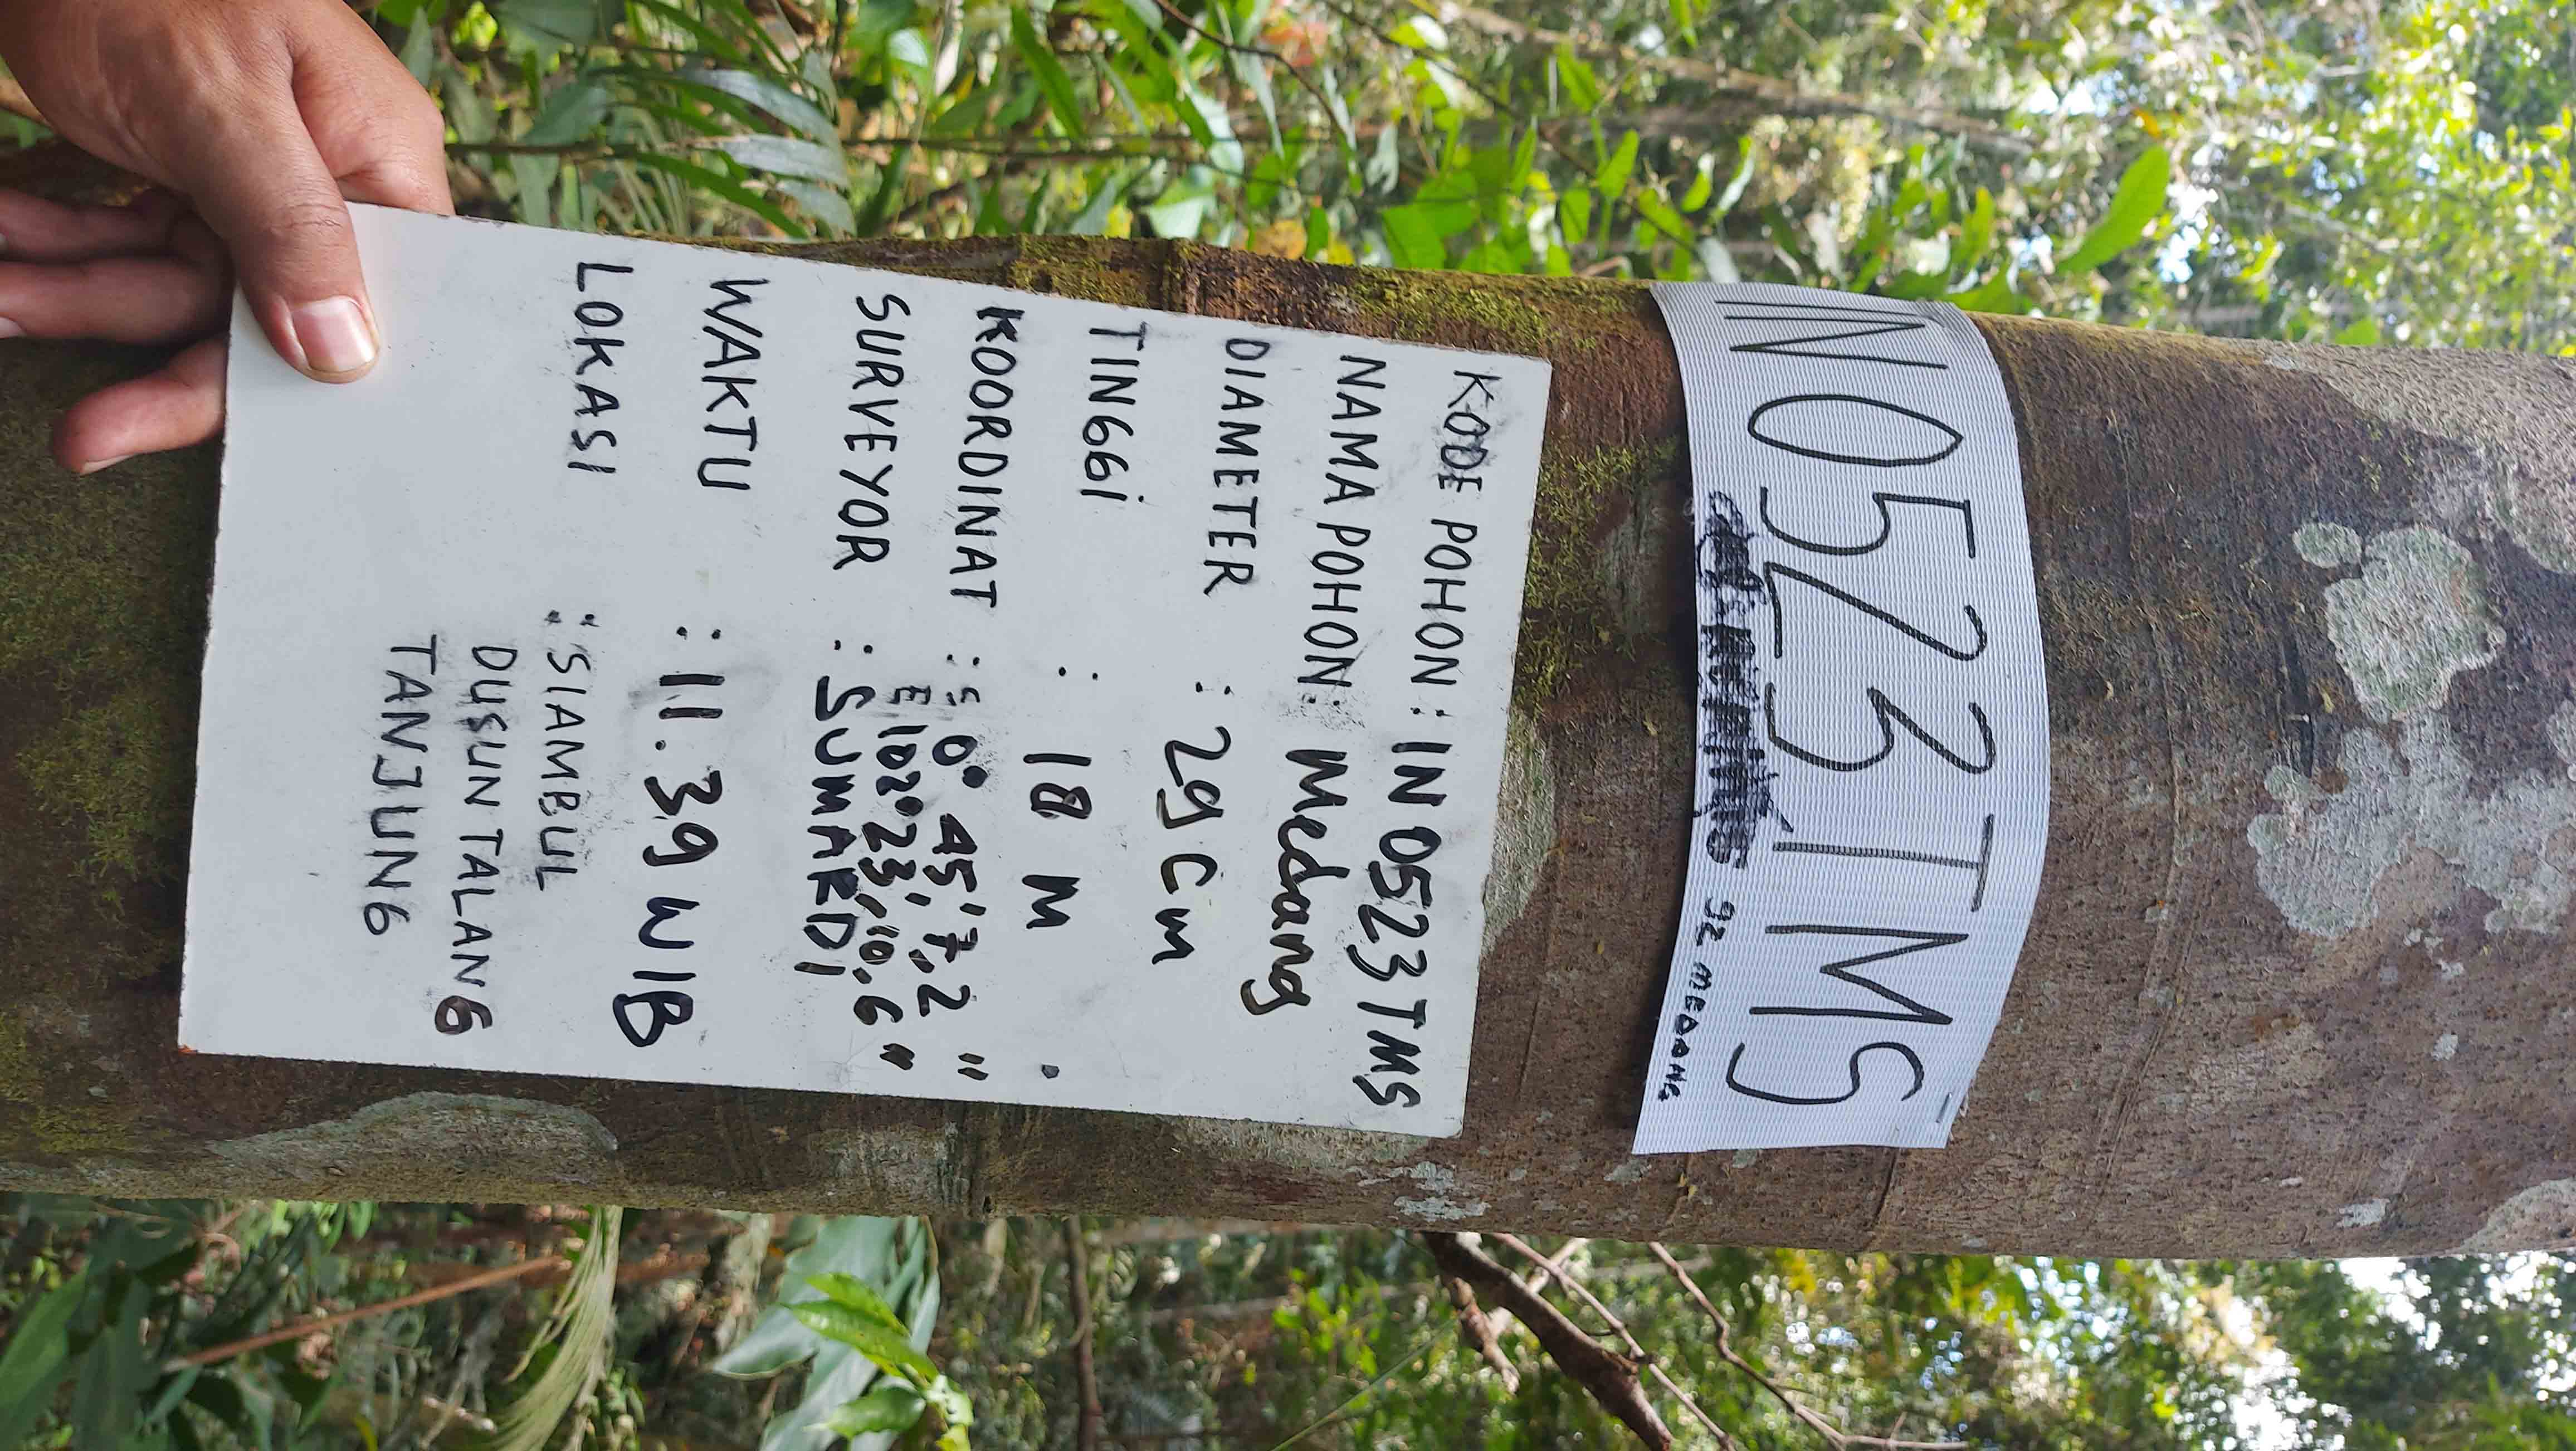 IN0523TMS
92 MEDANG
KODE POHON : IN 0523 TMS
NAMA POHON : Medang
DIAMETER : 29 Cm
TINGGi : 18 M
KOORDINAT : S 0° 45',7,2 "
E 102° 23',10,6 "
SURVEYOR : SUMARDi
WAKTU : 11.39 WIB
LOKASI : SIAMBUL
DUSUN TALANG
TANJUNG